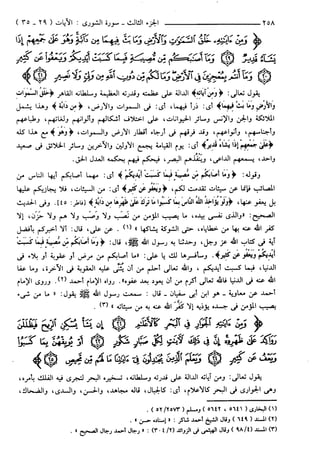 ٢٥٨ الجزء الثالث - سورة الشورى : الآيات ( ٢٩ - ٣٥ )
﴿ وَمِنْ ءَايَٰتِهِۦ خَلْقُ ٱلسَّمَٰوَٰتِ وَٱلْأَرْضِ وَمَا بَثَّ فِيهِمَا مِن دَآبَّةٍ وَهُوَ عَلَىٰ جَمْعِهِمْ إِذَا
يَشَآءُ قَدِيرٌ ﴿٢٩﴾ وَمَآ أَصَٰبَكُم مِّن مُّصِيبَةٍ فَبِمَا كَسَبَتْ أَيْدِيكُمْ وَيَعْفُوا۟ عَن كَثِيرٍ
﴿٣٠﴾ وَمَآ أَنتُم بِمُعْجِزِينَ فِى ٱلْأَرْضِ وَمَا لَكُم مِّن دُونِ ٱللَّهِ مِن وَلِىٍّ وَلَا نَصِيرٍ ﴿٣١﴾ ﴾
يقول تعالى: ﴿ومن آياته﴾ الدالة على عظمته وقدرته العظيمة وسلطانه القاهر ﴿خلق السموات
والأرض وما بث فيهما﴾ أي: ذرأ فيهما، أي: في السموات والأرض، ﴿من دابة﴾ وهذا يشمل
الملائكة والجن والإنس وسائر الحيوانات، على اختلاف أشكالهم وألوانهم ولغاتهم، وطباعهم
وأجناسهم، وأنواعهم، وقد فرقهم في أرجاء أقطار الأرض والسموات، ﴿وهو﴾ مع هذا كله
﴿على جمعهم إذا يشاء قدير﴾ أي: يوم القيامة يجمع الأولين والآخرين وسائر الخلائق في صعيد
واحد، يسمعهم الداعي، وينفذهم البصر، فيحكم فيهم بحكمه العدل الحق.
وقوله: ﴿وما أصابكم من مصيبة فبما كسبت أيديكم﴾ أي: مهما أصابكم أيها الناس من
المصائب فإنما عن سيئات تقدمت لكم، ﴿ويعفو عن كثير﴾ أي: من السيئات، فلا يجازيكم عليها
بل يعفو عنها، ﴿ولو يؤاخذ الله الناس بما كسبوا ما ترك على ظهرها من دابة﴾ [فاطر: ٤٥]. وفي الحديث
الصحيح: «والذي نفسي بيده، ما يصيب المؤمن من نصب ولا وصب ولا هم ولا حزن، إلا
كفر الله عنه بها من خطاياه، حتى الشوكة يشاكها» (١) . عن علي، قال: ألا أخبركم بأفضل
آية في كتاب الله عز وجل، وحدثنا به رسول الله ﷺ، قال: ﴿وما أصابكم من مصيبة فبما كسبت
أيديكم ويعفو عن كثير﴾. وسأفسرها لك يا علي: «ما أصابكم من مرض أو عقوبة أو بلاء في
الدنيا، فبما كسبت أيديكم ، والله تعالى أحلم من أن يثني عليه العقوبة في الآخرة، وما عفا
الله عنه في الدنيا فالله تعالى أكرم من أن يعود بعد عفوه». رواه الإمام أحمد (٢). وروى الإمام
أحمد عن معاوية ـ هو ابن أبي سفيان ـ قال : سمعت رسول الله ﷺ يقول: «ما من شيء
يصيب المؤمن في جسده يؤذيه إلا كفر الله عنه به من سيئاته» (٣) .
﴿ وَمِنْ ءَايَٰتِهِ ٱلْجَوَارِ فِى ٱلْبَحْرِ كَٱلْأَعْلَٰمِ ﴿٣٢﴾ إِن يَشَأْ يُسْكِنِ ٱلرِّيحَ فَيَظْلَلْنَ
رَوَاكِدَ عَلَىٰ ظَهْرِهِۦٓ إِنَّ فِى ذَٰلِكَ لَءَايَٰتٍ لِّكُلِّ صَبَّارٍ شَكُورٍ ﴿٣٣﴾ أَوْ يُوبِقْهُنَّ بِمَا
كَسَبُوا۟ وَيَعْفُ عَن كَثِيرٍ ﴿٣٤﴾ وَيَعْلَمَ ٱلَّذِينَ يُجَٰدِلُونَ فِىٓ ءَايَٰتِنَا مَا لَهُم مِّن مَّحِيصٍ ﴿٣٥﴾ ﴾
يقول تعالى: ومن آياته الدالة على قدرته وسلطانه، تسخيره البحر لتجري فيه الفلك بأمره،
وهي الجواري في البحر كالأعلام، أي: كالجبال، قاله مجاهد، والحسن، والسدي، والضحاك،
(١) البخاري ( ٥٦٤١ ، ٥٦٤٢ ) ومسلم ( ٢٥٧٣ / ٥٢ ) .
(٢) المسند ( ٦٤٩ ) وقال الشيخ أحمد شاكر : « إسناده حسن » .
(٣) المسند ( ٤ / ٩٨ ) وقال الهيثمي في الزوائد ( ٢ / ٣٠٤ ) : « رجال أحمد رجال الصحيح » .